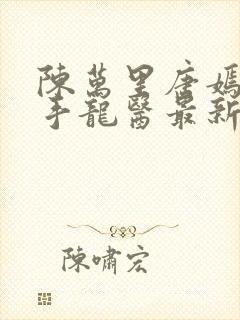 陳萬里唐嫣
手龍醫最新
陳嘯宏